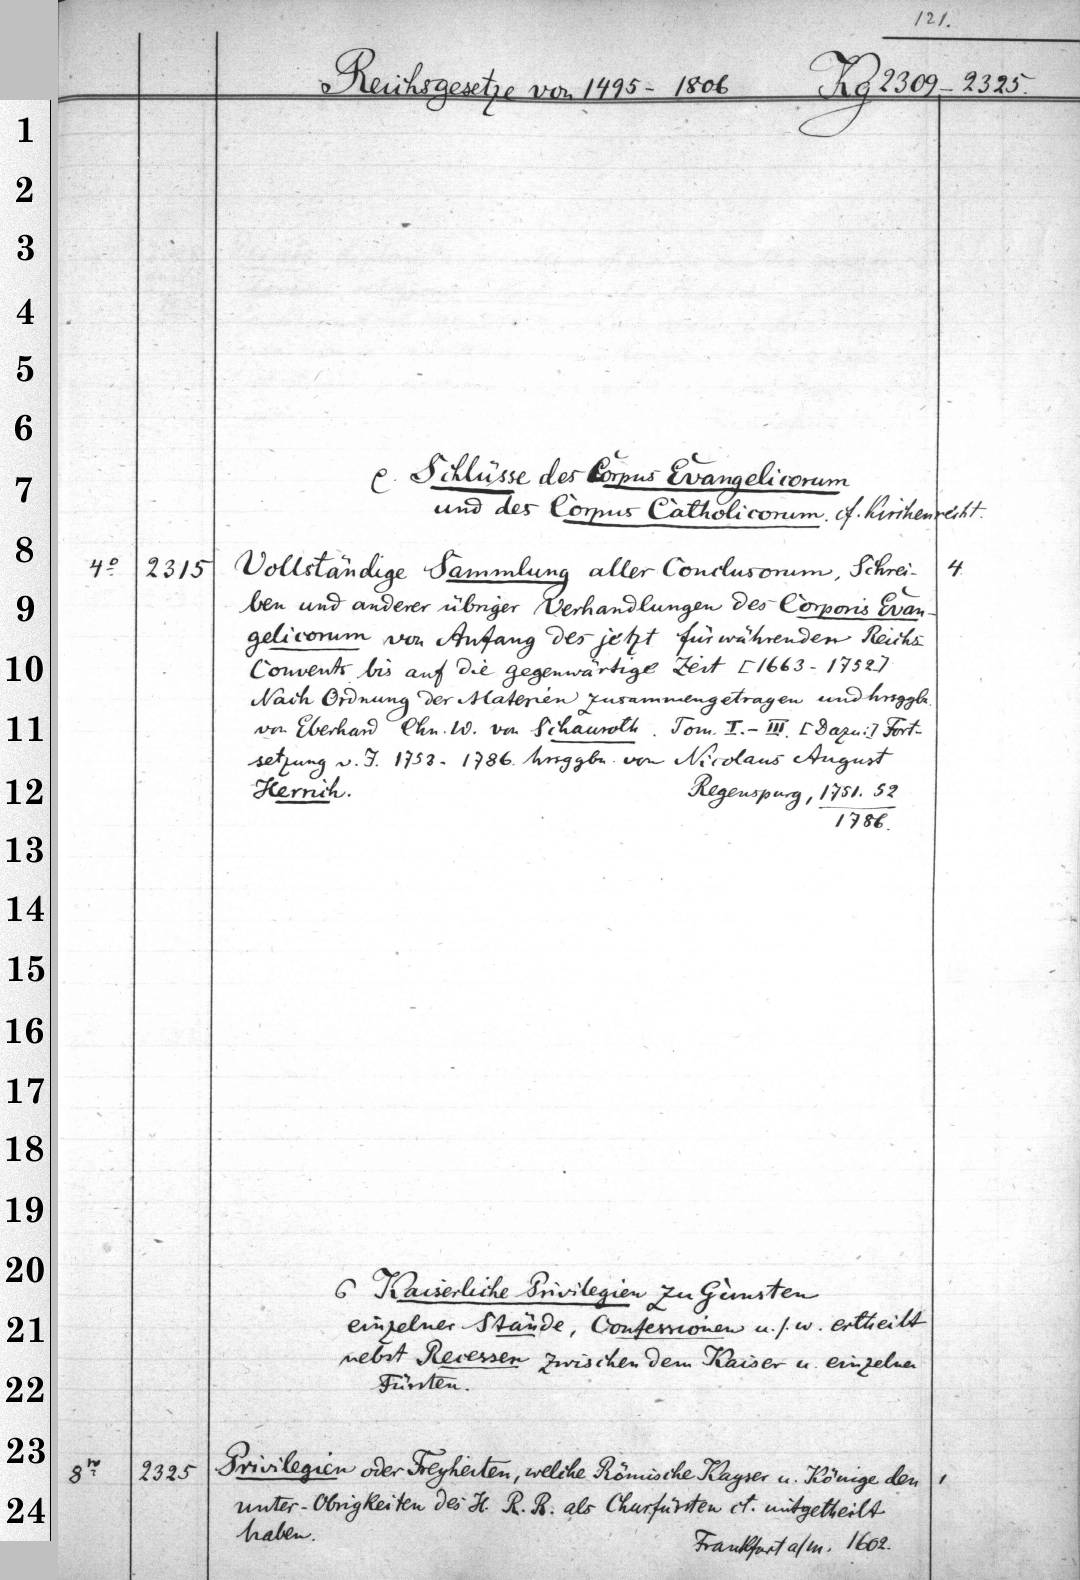 121.
Reichsgesetze von 1495 - 1806 Kg 2309 - 2325.
1
2
3
4
5
6
7
8
9
10
11
12
13
14
15
16
17
18
19
20
21
22
23
24
e. Schlüsse des Corpus Evangelicorum
und des Corpus Catholicorum. cf. Kirchenrecht.
4º 2315 Vollständige Sammlung aller Conclusorum, Schrei- 4
ben und anderer übriger Verhandlungen des Corporis Evan-
gelicorum von Anfang des jetzt fürwährenden Reichs
Convents bis auf die gegenwärtige Zeit [1663 - 1752]
Nach Ordnung der Materien zusammengetragen und hrsggbn.
von Eberhard Chn. W. von Schauroth. Tom. I. - III. [Dazu:] Fort-
setzung v. J. 1753 - 1786. hrsggbn. von Nicolaus August
Herrich. Regenspurg, 1751. 52
1786.
6 Kaiserliche Privilegien zu Gunsten
einzelner Stände, Confessionen u.s.w. ertheilt
nebst Recessen zwischen dem Kaiser u. einzelnen
Fürsten.
8vo 2325 Privilegien oder Freyheiten, welche Römische Kayser u. Könige den 1
unter-Obrigkeiten des H. R. R. als Churfürsten ct. mitgetheilt
haben. Frankfurt a/m. 1602.